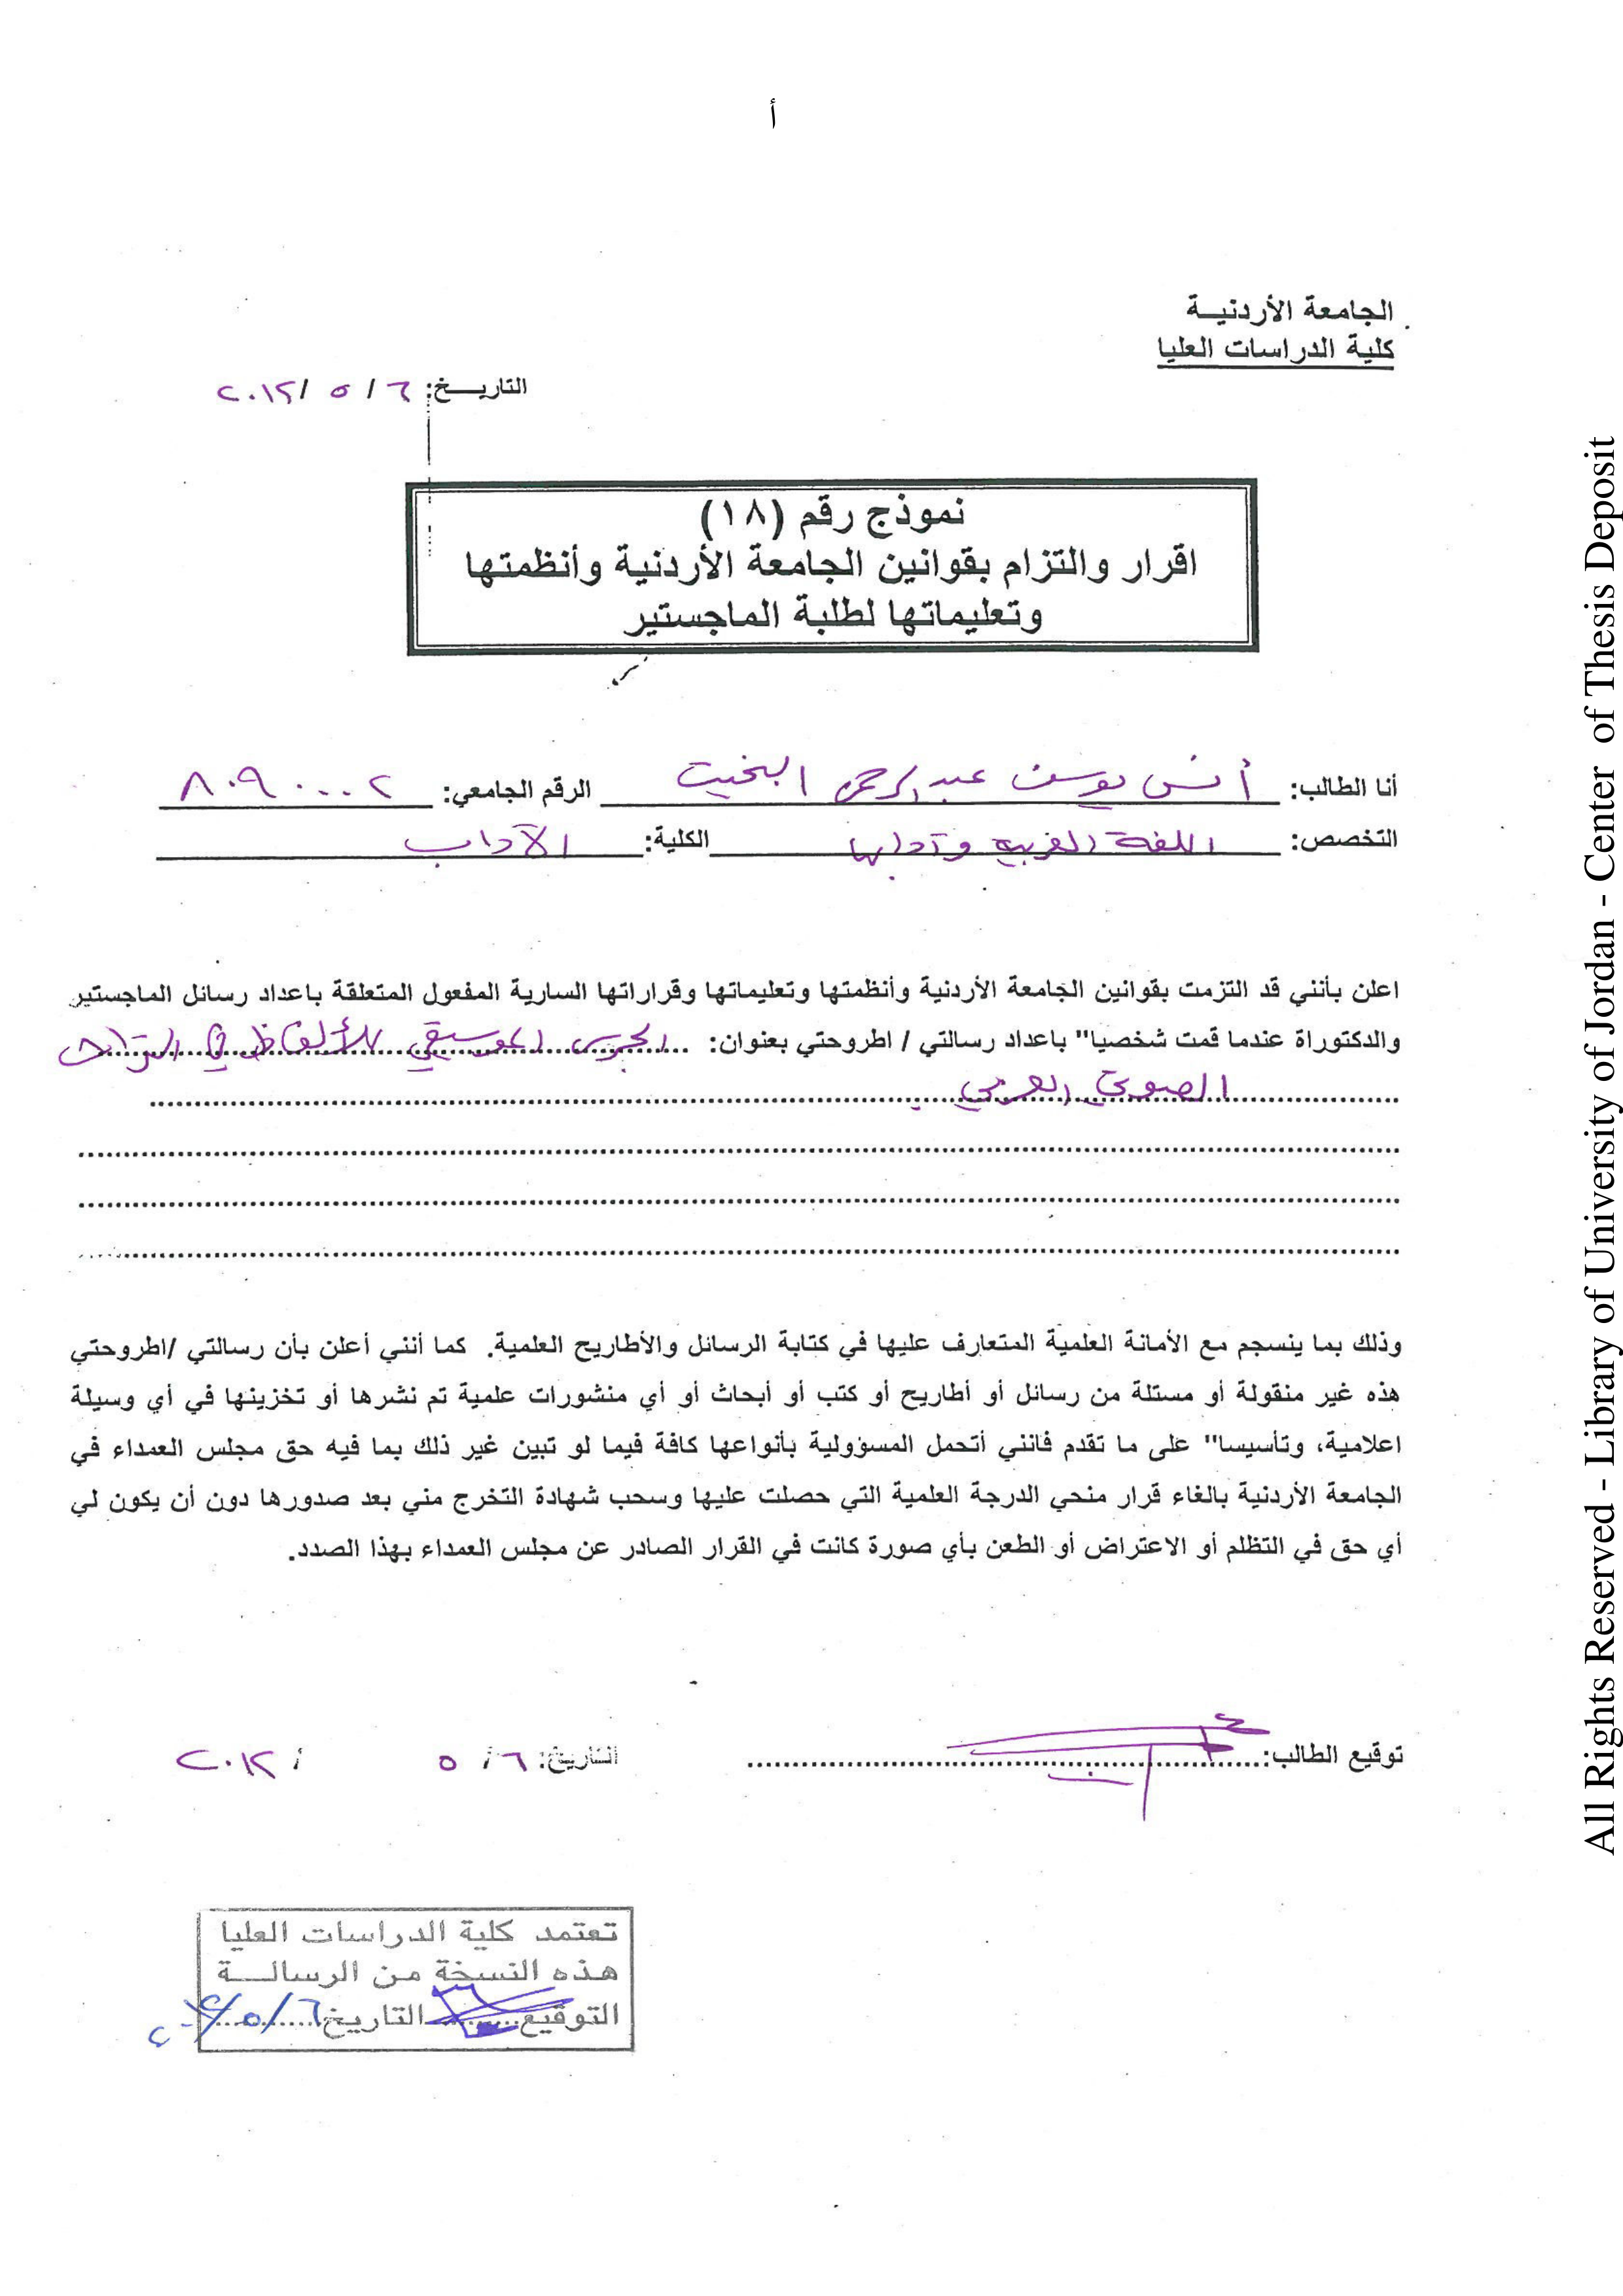 أ
الجامعة الأردنيــة
كلية الدراسات العليا
التاريــخ: ٦ / ٥ /٢٠١٢
نموذج رقم (١٨)
اقرار والتزام بقوانين الجامعة الأردنية وأنظمتها
وتعليماتها لطلبة الماجستير
أنا الطالب: أنس يوسف عبدالرحمن البخيت الرقم الجامعي: ٨٠٩٠٠٠٢
التخصص: اللغة العربية وآدابها الكلية: الآداب
اعلن بأنني قد التزمت بقوانين الجامعة الأردنية وأنظمتها وتعليماتها وقراراتها السارية المفعول المتعلقة باعداد رسائل الماجستير
والدكتوراة عندما قمت شخصيا" باعداد رسالتي / اطروحتي بعنوان: الجرس الموسيقي للألفاظ في التراث
الصوتي العربي
وذلك بما ينسجم مع الأمانة العلمية المتعارف عليها في كتابة الرسائل والأطاريح العلمية. كما أنني أعلن بأن رسالتي /اطروحتي
هذه غير منقولة أو مستلة من رسائل أو أطاريح أو كتب أو أبحاث أو أي منشورات علمية تم نشرها أو تخزينها في أي وسيلة
اعلامية، وتأسيسا" على ما تقدم فانني أتحمل المسؤولية بأنواعها كافة فيما لو تبين غير ذلك بما فيه حق مجلس العمداء في
الجامعة الأردنية بالغاء قرار منحي الدرجة العلمية التي حصلت عليها وسحب شهادة التخرج مني بعد صدورها دون أن يكون لي
أي حق في التظلم أو الاعتراض أو الطعن بأي صورة كانت في القرار الصادر عن مجلس العمداء بهذا الصدد.
توقيع الطالب: التاريخ: ٦ / ٥ / ٢٠١٢
تعتمد كلية الدراسات العليا
هذه النسخة من الرسالــة
التوقيع التاريخ ٦/٥/
All Rights Reserved - Library of University of Jordan - Center of Thesis Deposit